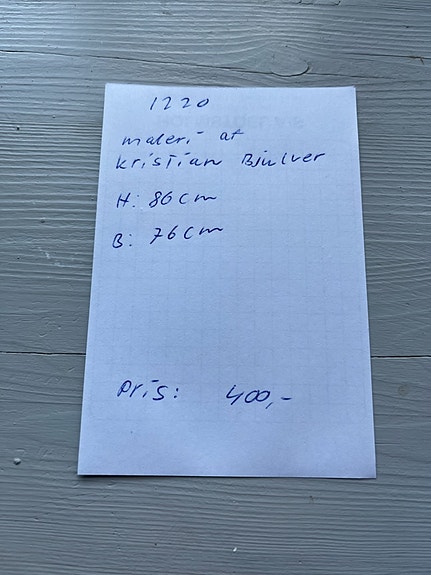 1220
maleri af
Kristian Bjulver
H: 86cm
B: 76cm
Pris: 400,-